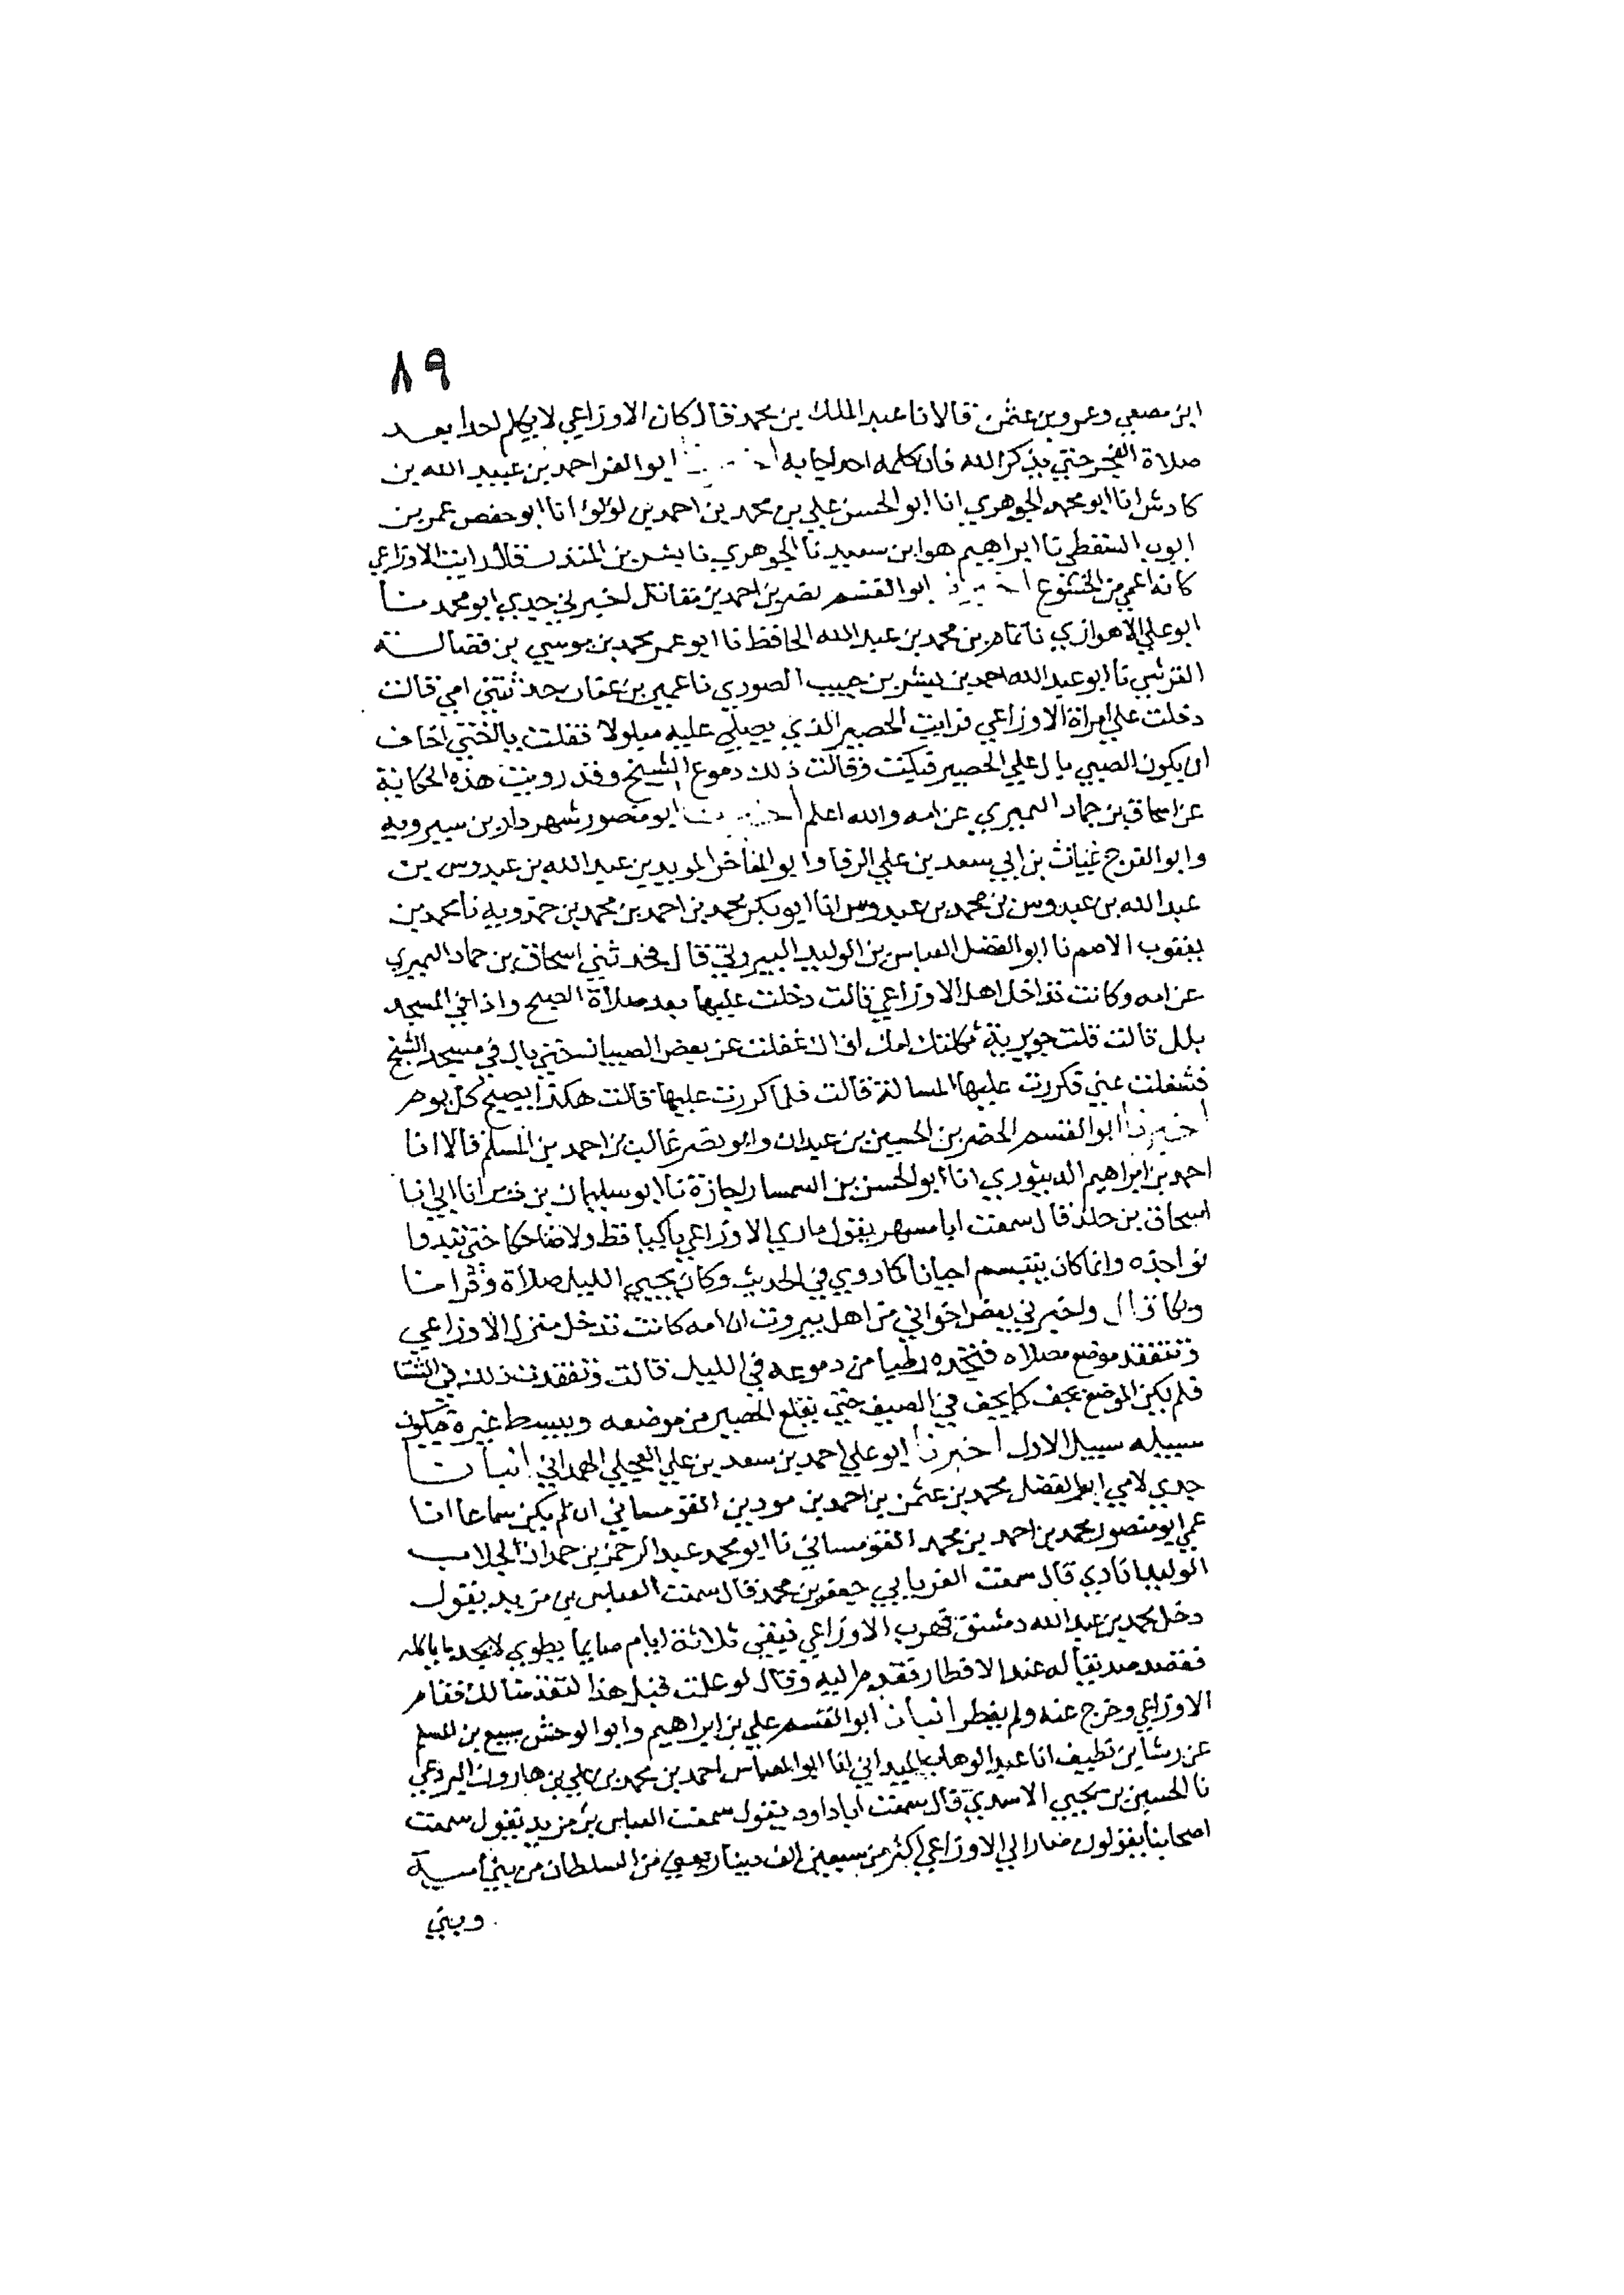 ٨٩
ابن مصفى وعمرو بن عثمن قالا نا عبد الملك بن محمد قال كان الاوزاعي لا يكلم احدا بعد
صلاة الفجر حتى يذكر الله فان كلمه احد اجابه ابو العز احمد بن عبيد الله بن
كادش انا ابو محمد الجوهري انا ابو الحسن علي بن محمد بن احمد بن لؤلؤ انا ابو حفص عمر بن
ايوب السقطي نا ابراهيم هو ابن سعيد نا الجوهري نا بشر بن المنذر قال رايت الاوزاعي
كانه اعمى من الخشوع اخبرنا ابو القسم نصر بن احمد بن مقاتل اخبرني جدي ابو محمد نا
ابو علي الاهوازي نا تمام بن محمد بن عبد الله الحافظ نا ابو عمر محمد بن موسي بن فضالة
القرشي نا ابو عبد الله احمد بن بشر بن حبيب الصوري نا عمير بن عفار حدثتني امي قالت
دخلت علي امراة الاوزاعي فرايت الحصير الذي يصلي عليه مبلولا فقلت يا اختي اخاف
ان يكون الصبي بال علي الحصير فبكت وقالت ذلك دموع الشيخ وقد رويت هذه الحكاية
عن اسحاق بن حماد النميري عن امه والله اعلم اخبرنا ابو منصور شهردار بن سيرويه
وابو الفرج غياث بن ابي سعد بن علي الرفا وابو المفاخر المويد بن عبد الله بن عبدوس بن
عبد الله بن عبدوس بن محمد بن عبدوس انا ابو بكر محمد بن احمد بن محمد بن حمدويه نا محمد بن
يعقوب الاصم نا ابو الفضل العباس بن الوليد البيروتي قال فحدثني اسحاق بن حماد النميري
عن امه وكانت تداخل اهل الاوزاعي قالت دخلت عليها بعد صلاة الصبح واذا في المسجد
بلل قالت قلت جويرية ثكلتك امك اراك غفلت عن بعض الصبيان حتى بال في مسجد الشيخ
فشغلت عني فكررت عليها المسالة قالت فلما كررت عليها قالت هكذا يصبح كل يوم
اخبرنا ابو القسم الخضر بن الحسين بن عبدان وابو نصر غالب بن احمد بن المسلم قالا انا
احمد بن ابراهيم الدينوري انا ابو الحسن بن السمسار اجازة نا ابو سليمان بن زبر انا ابي نا
اسحاق بن خلد قال سمعت ابا مسهر يقول ما ري الاوزاعي باكيا قط ولا ضاحكا حتى تبدوا
نواجذه وانما كان يتبسم احيانا كما روي في الحديث وكان يحيي الليل صلاة وقرانا
وبكا قال واخبرني بعض اخواني من اهل بيروت ان امه كانت تدخل منزل الاوزاعي
وتتفقد موضع مصلاه فتجده رطبا من دموعه في الليل قالت وتفقدت ذلك في الشتا
فلم يكن الموضع يجف كما يجف في الصيف حتى يقلع الحصير من موضعه ويبسط غيره فيكون
سبيله سبيل الاول اخبرنا ابو علي احمد بن سعد بن علي العجلي الهمداني انبانا
جدي لامي ابو الفضل محمد بن عثمن بن احمد بن مردين القومساني ان لم يكن سماعا انا
عمي ابو منصور محمد بن احمد بن محمد القومساني نا ابو محمد عبد الرحمن بن حمدان الجلاب
الوليدابادي قال سمعت الفريابي جعفر بن محمد قال سمعت العباس بن مزيد يقول
دخل محمد بن عبد الله دمشق فهرب الاوزاعي فبقي ثلاثة ايام صايما يطوي لا يجد ما ياكله
فقصد صديقا له عند الافطار فقدم اليه وقال لو علمت قبل هذا لتقدمنا لك فقام
الاوزاعي وخرج عنه ولم يفطر انبانا ابو القسم علي بن ابراهيم وابو الوحش سبيع بن المسلم
عن رشا بن نظيف انا عبد الوهاب الميداني انا ابو العباس احمد بن محمد بن علي بن هارون البردعي
نا الحسين بن يحيي الاسدي قال سمعت ابا داود يقول سمعت العباس بن مزيد يقول سمعت
اصحابنا يقولون صار الي الاوزاعي اكثر من سبعين الف دينار يعني من السلطان من بني امية
وبني